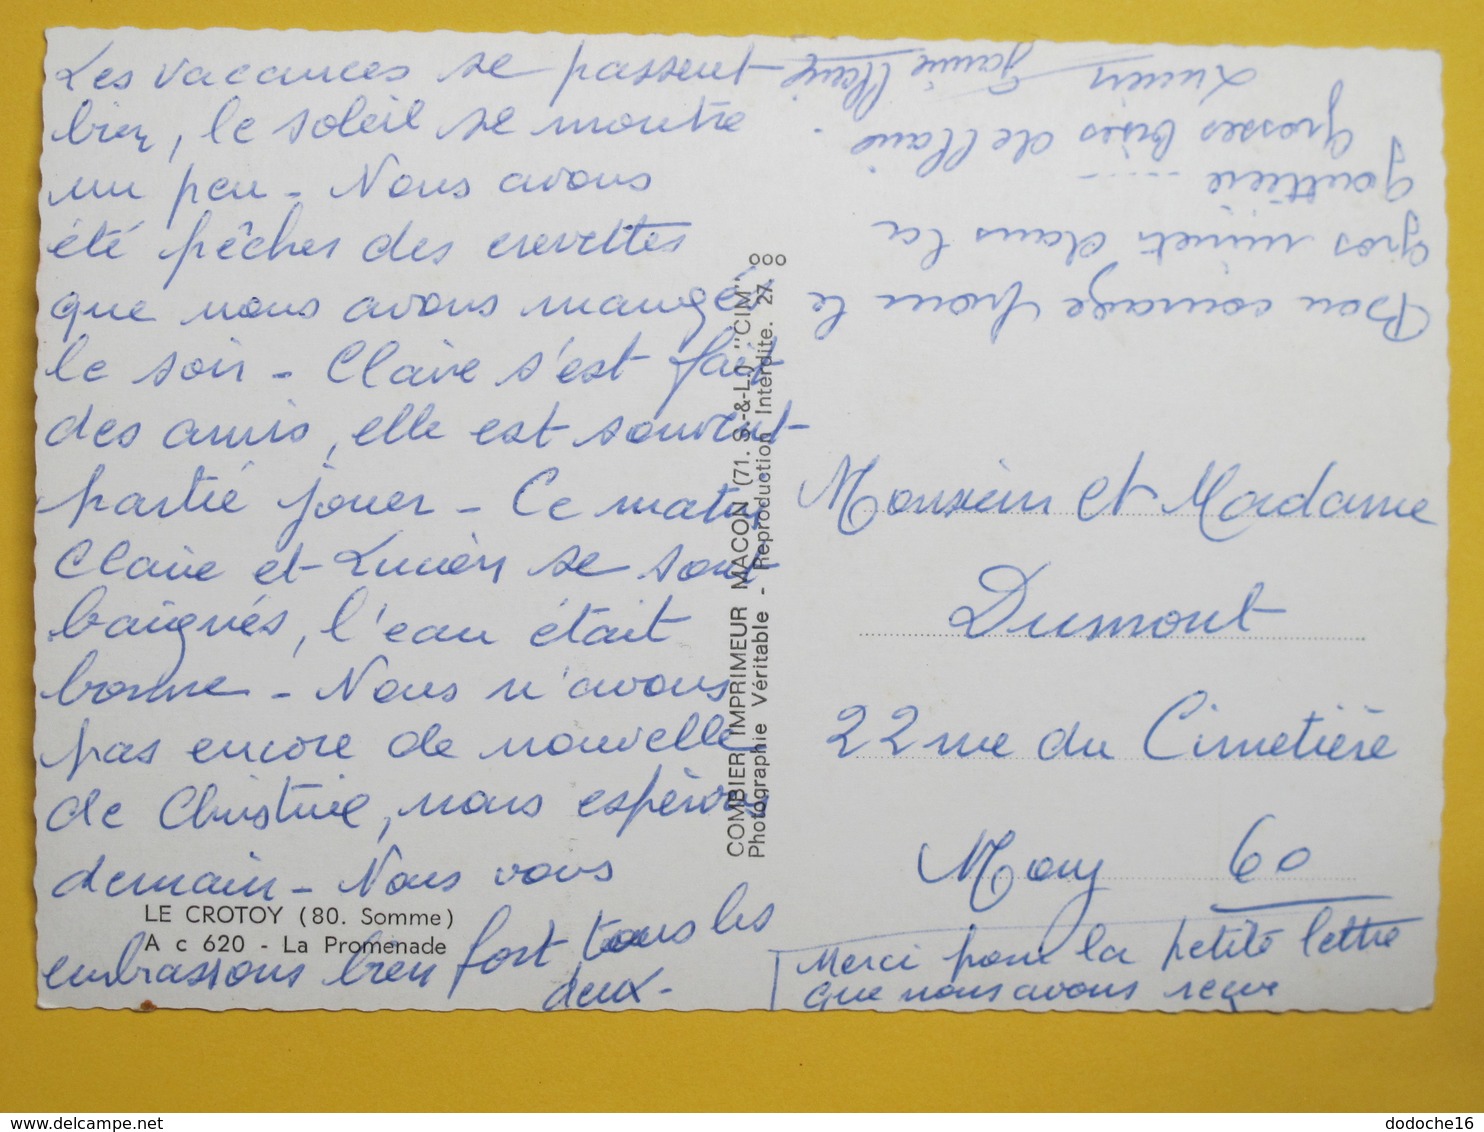 Les vacances se passent
bien, le soleil se montre
un peu - Nous avons
été pêcher des crevettes
que nous avons mangé
le soir - Claire s'est fait
des amis, elle est souvent
partie jouer - Ce matin
Claire et Lucien se sont
baignés, l'eau était
bonne - Nous n'avons
pas encore de nouvelle
de Christine, nous espérons
demain - Nous vous
embrassons bien fort tous les
deux -
LE CROTOY (80. Somme)
A c 620 - La Promenade
COMBIER IMPRIMEUR MACON (71. S.-&-L.) "CIM"
Photographie Véritable - Reproduction Interdite. 27.
Bon courage pour le
gros minet dans la
gouttière ....
Grosses bises de Claire.
Lucien Claire
Monsieur et Madame
Dumont
22 rue du Cimetière
Mouy 60
Merci pour la petite lettre
que nous avons reçue
dodoche16